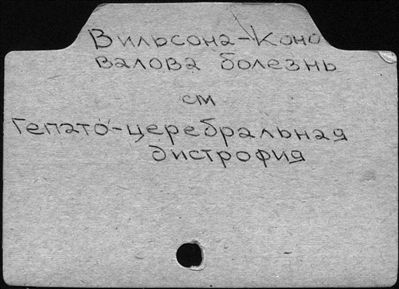 Вильсона-Коно
валова болезнь
см
Гепато-церебральная
дистрофия